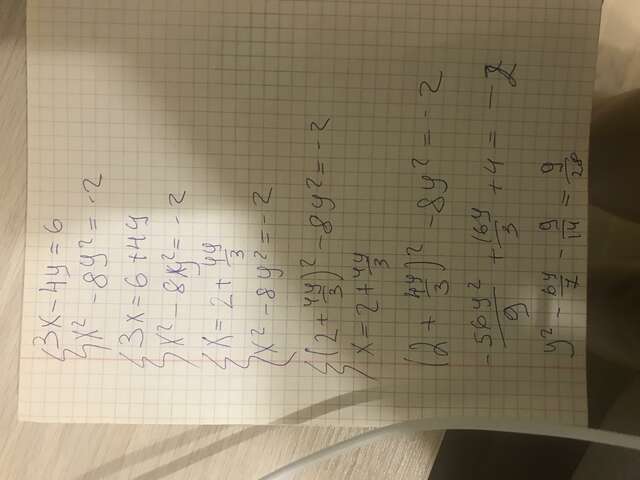 3x-4y=6
x²-8y²=-2
3x=6+4y
x²-8y²=-2
x=2+4y/3
x²-8y²=-2
(2+4y/3)²-8y²=-2
x=2+4y/3
(2+4y/3)²-8y²=-2
-56y²/9+16y/3+4=-2
y²-6y/7-9/14=9/28